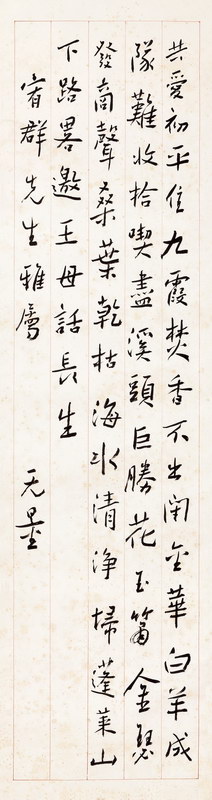 共愛初平住九霞焚香不出閉金華白羊成
隊難收拾喫盡溪頭巨勝花玉簫金瑟
發商聲桑葉乾枯海水清淨掃蓬萊山
下路畧邀王母話長生
宥群先生雅屬
无量